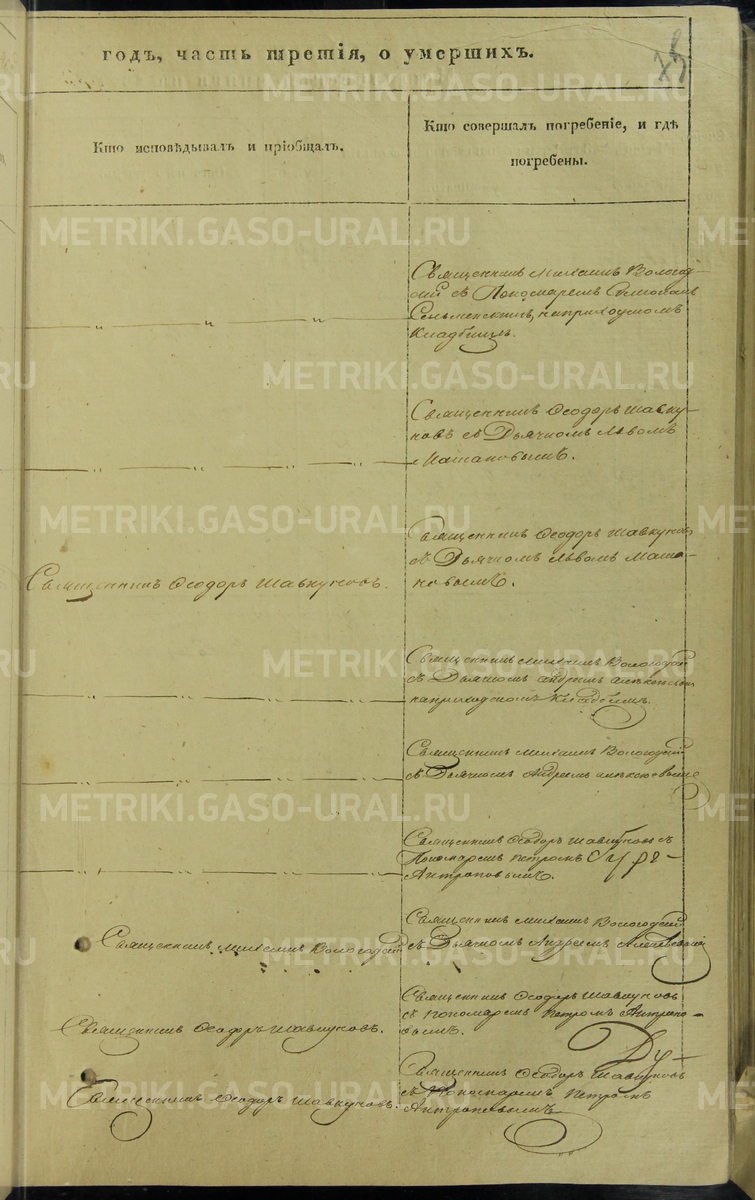 годъ, часть третія, о умершихъ.
Кто исповѣдывалъ и пріобщалъ.
Кто совершалъ погребеніе, и гдѣ
погребены.
METRIKI.GASO-URAL.RU
Священникъ Михаилъ Вологод-
скій съ Пономаремъ
на приходскомъ
Кладбищѣ.
Священникъ Ѳеодоръ Шавку-
новъ съ Дьячкомъ Львомъ
Матановымъ.
Священникъ Ѳеодоръ Шавкуновъ.
Священникъ Ѳеодоръ Шавкуновъ
съ Дьячкомъ Львомъ Мата-
новымъ.
Священникъ Михаилъ Вологодскій
съ Дьячкомъ Андреемъ Алексѣевымъ
на приходскомъ Кладбищѣ.
Священникъ Михаилъ Вологодскій
съ Дьячкомъ Андреемъ Алексѣевымъ
Священникъ Ѳеодоръ Шавкуновъ съ
Пономаремъ Петромъ
Антроповымъ.
Священникъ Михаилъ Вологодскій
Священникъ Михаилъ Вологодскій
съ Дьячкомъ Андреемъ
Священникъ Ѳеодоръ Шавкуновъ.
Священникъ Ѳеодоръ Шавкуновъ
съ Пономаремъ Петромъ Антропо-
вымъ.
Священникъ Ѳеодоръ Шавкуновъ.
Священникъ Ѳеодоръ Шавкуновъ
съ Пономаремъ Петромъ
Антроповымъ.